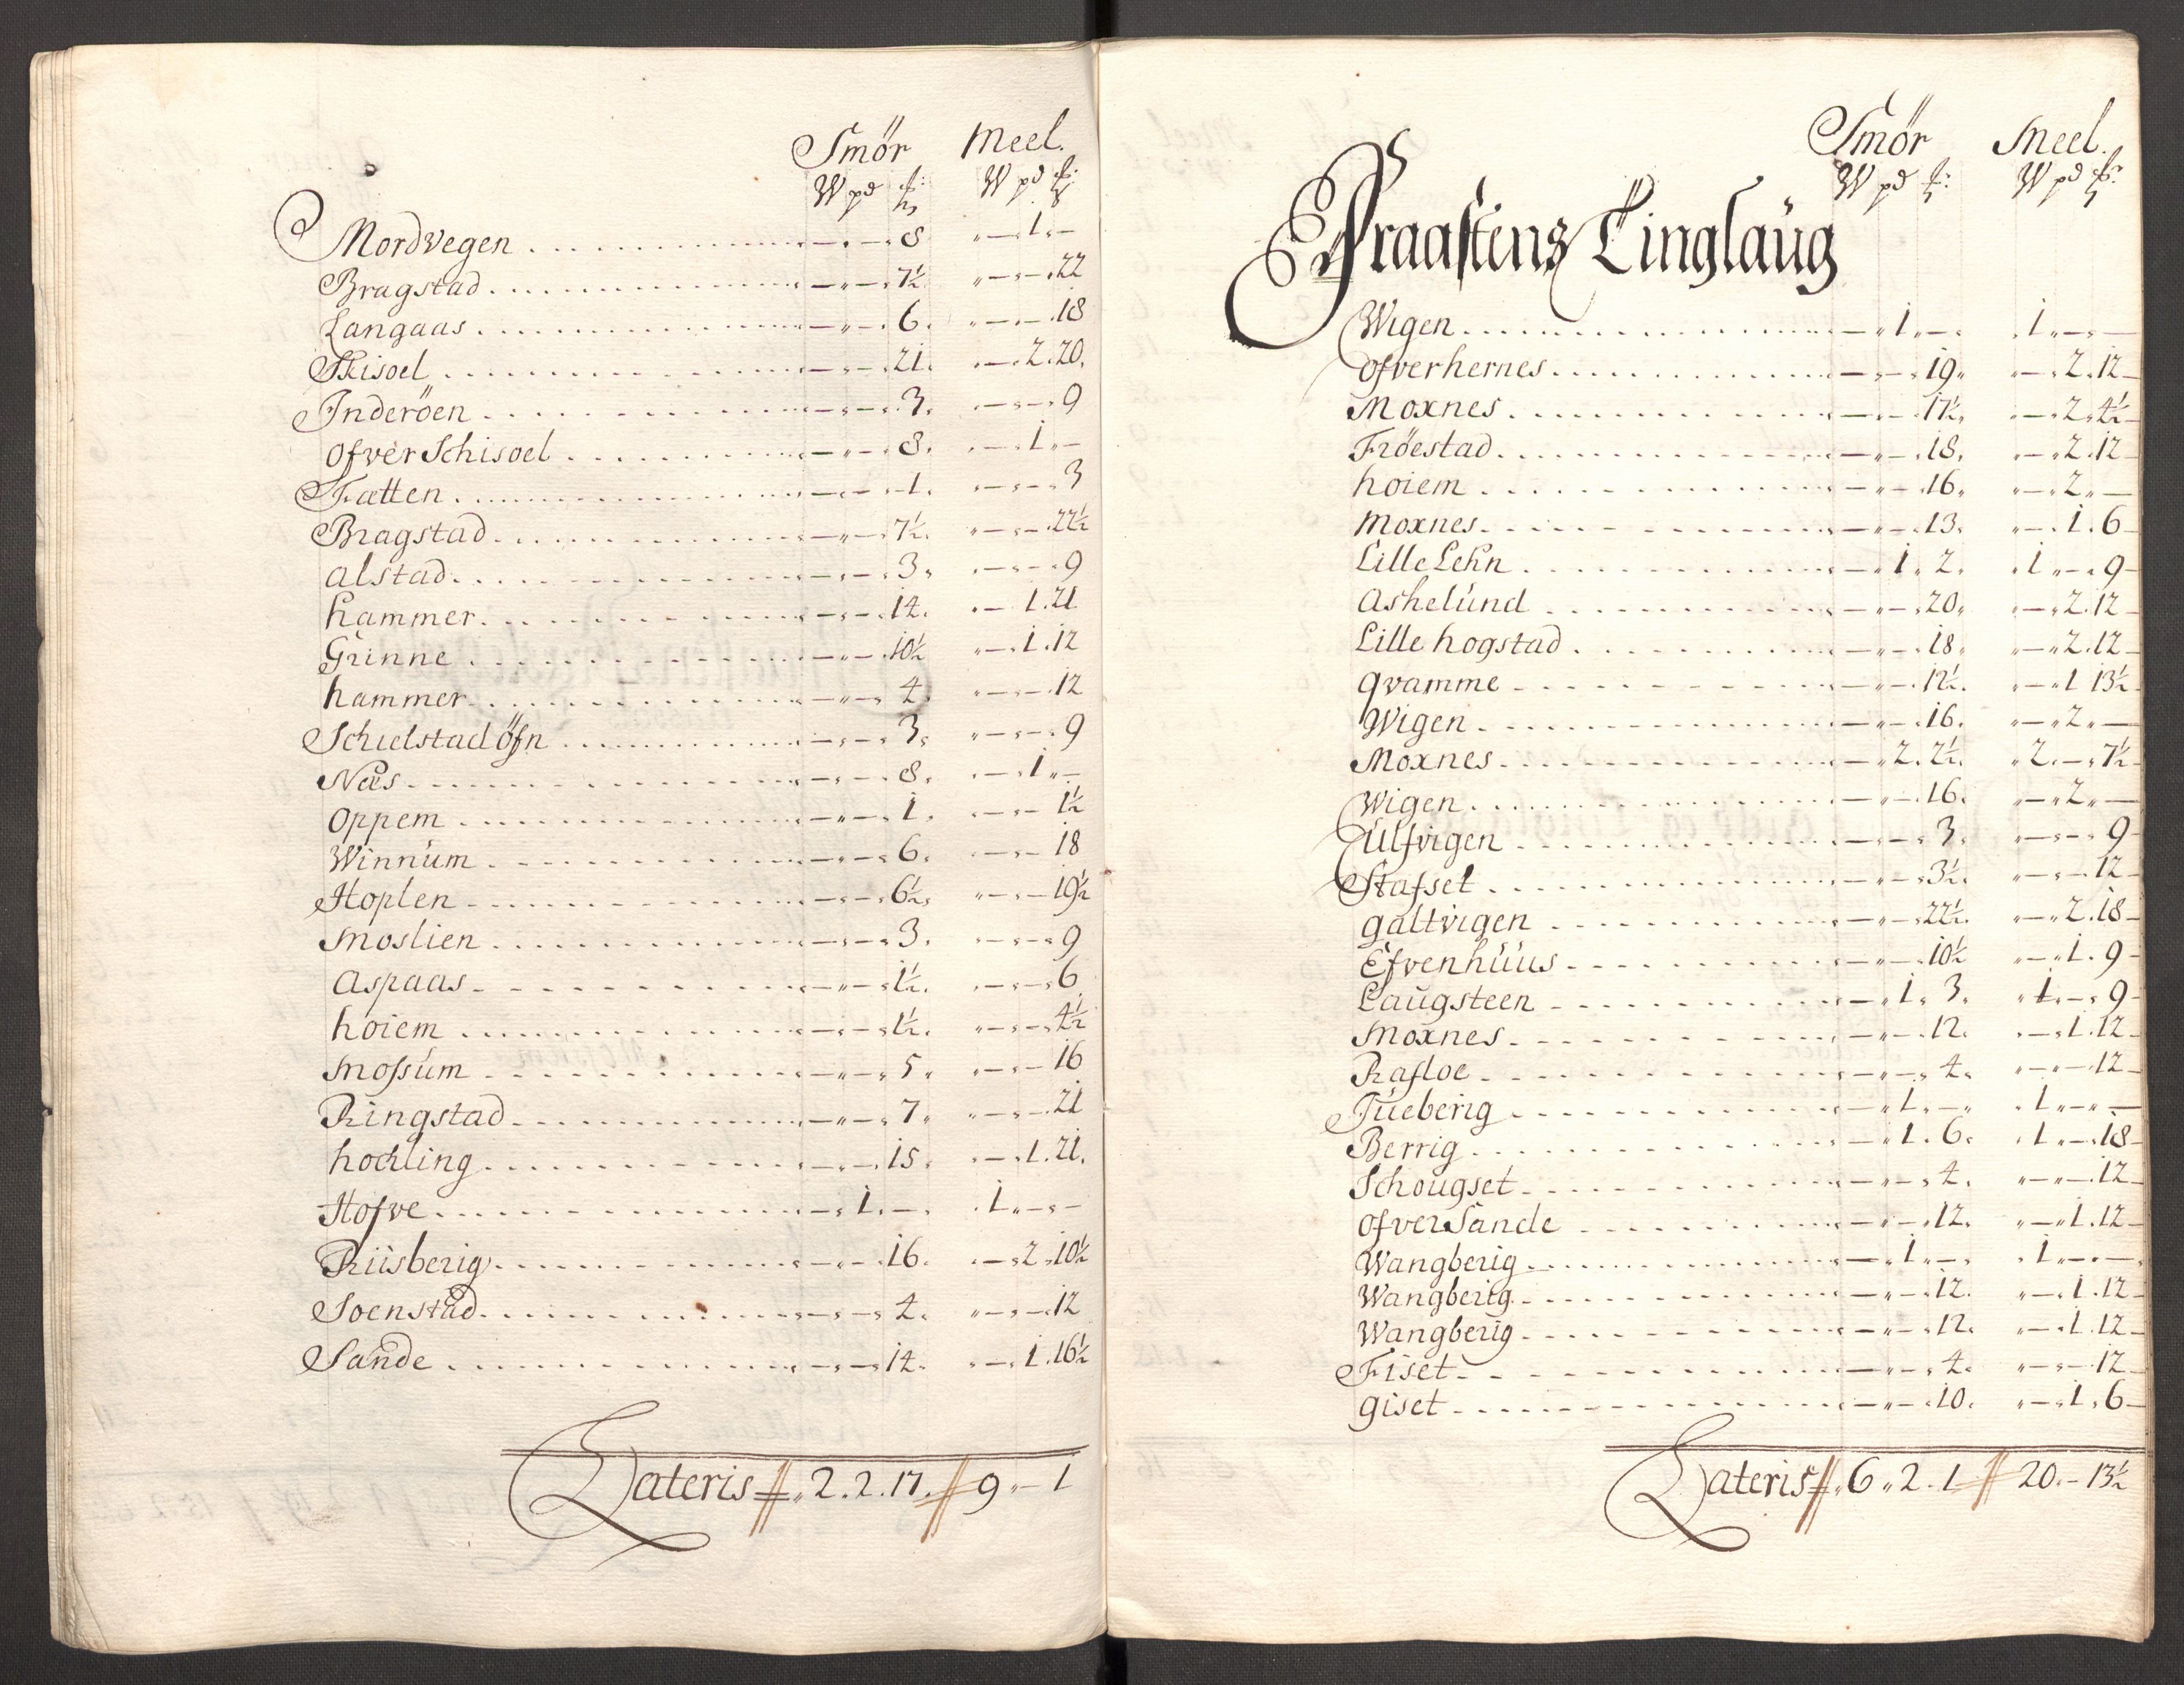 Smör Meel.
W pd W pd
Mordvegen - „ - 8 „ - 1 „ -
Bragstad - „ - 7½ „ - „ - 22
Langaas - „ - 6 „ - „ - 18
Skisoel - „ - 21 „ - 2 . 20
Inderöen - „ - 3 „ - „ - 9
ofver Schisoel - „ - 8 „ - 1 „ -
Fætten - „ - 1 „ - „ - 3
Bragstad - „ - 7½ „ - „ - 22½
alstad - „ - 3 „ - „ - 9
hammer - „ - 14 „ - 1 . 21
Grinne - „ - 10½ „ - 1 . 12
hammer - „ - 4 „ - „ - 12
Schielstad öfn - „ - 3 „ - „ - 9
Næs - „ - 8 „ - 1 „ -
oppem - „ - 1 „ - „ - 1½
Winnum - „ - 6 „ - „ - 18
Hoplen - „ - 6½ „ - „ - 19½
Moslien - „ - 3 „ - „ - 9
Aspaas - „ - 1½ „ - „ - 6
hoiem - „ - 1½ „ - „ - 4½
Mossum - „ - 5 „ - „ - 16
Ringstad - „ - 7 „ - „ - 21
hocling - „ - 15 „ - 1 . 21
Hofve - „ 1 „ - „ 1 „ - „ -
Riisberig - „ - 16 „ - 2 „ 10½
Soenstad - „ - 4 „ - „ - 12
Sande - „ - 14 „ - 1 . 16½
Lateris „ 2 . 2 . 17 . 9 „ - 1
Smör Meel.
W pd W pd
Fraastens Tinglaug
Wigen - „ 1 „ - „ 1 „ - „ -
ofverhernes - „ - 19 „ - 2 . 12
Moxnes - „ - 17½ „ - 2 „ 4½
Fröestad - „ - 18 „ - 2 . 12
hoiem - „ - 16 „ - 2 „ -
Moxnes - „ - 13 „ - 1 . 6
Lille Lehn - „ 1 „ 2 „ 1 „ - „ 9
Ashelund - „ - 20 „ - 2 . 12
Lille hogstad - „ - 18 „ - 2 . 12
qvamme - „ - 12½ „ - 1 13½
Wigen - „ - 16 „ - 2 „ -
Moxnes - „ 2 . 2½ „ 2 „ - „ 7½
Wigen - „ - 16 „ - 2 „ -
Ulfvigen - „ - 3 „ - „ - 9
Stafset - „ - 3½ „ - „ - 12
galtvigen - „ - 22½ „ - 2 . 18
Efvenhuus - „ - 10½ „ - 1 . 9
Laugsteen - „ 1 . 3 „ 1 „ - „ 9
Moxnes - „ - 12 „ - 1 . 12
Rafloe - „ - 4 „ - „ - 12
Tueberig - „ 1 „ - „ 1 „ - „ -
Berrig - „ 1 . 6 „ 1 „ - 18
Schougset - „ - 4 „ - „ - 12
ofver Sande - „ - 12 „ - 1 . 12
Wangberig - „ 1 „ - „ 1 „ - „ -
Wangberig - „ - 12 „ - 1 . 12
Wangberig - „ - 12 „ - 1 . 12
Fiset - „ - 4 „ - „ - 12
giset - „ - 10 „ - 1 „ 6
Lateris „ 6 „ 2 . 1 20 „ - 13½